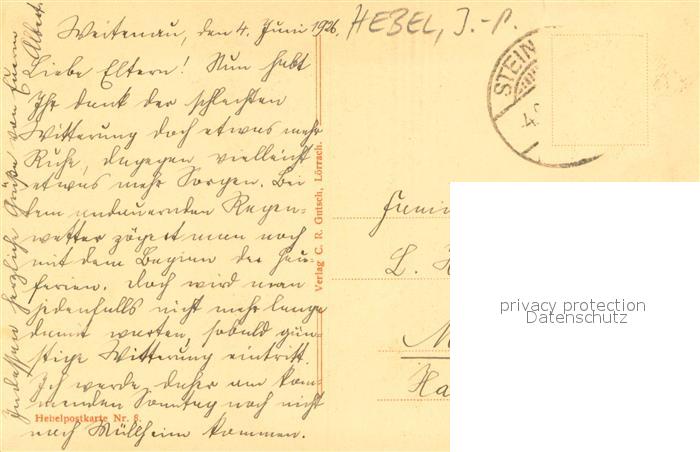 Weitenau, den 4. Juni 1926.
HEBEL, J.-P.
Liebe Eltern! Nun habt
Ihr dank der schlechten
Witterung doch etwas mehr
Ruhe, dagegen vielleicht
etwas mehr Sorgen. Bei
dem andauernden Regen-
wetter zögert man noch
mit dem Beginn der Heu-
ferien. Doch wird man
jedenfalls nicht mehr lange
damit warten, sobald gün-
stige Witterung eintritt.
Ich werde daher am kom-
menden Sonntag noch nicht
nach Müllheim kommen.
Indessen herzliche Grüße von Euerm
Albert.
Hebelpostkarte Nr. 8.
Verlag C. R. Gutsch, Lörrach.
STEIN
4.
Famil
L. H
M
Ha
privacy protection
Datenschutz